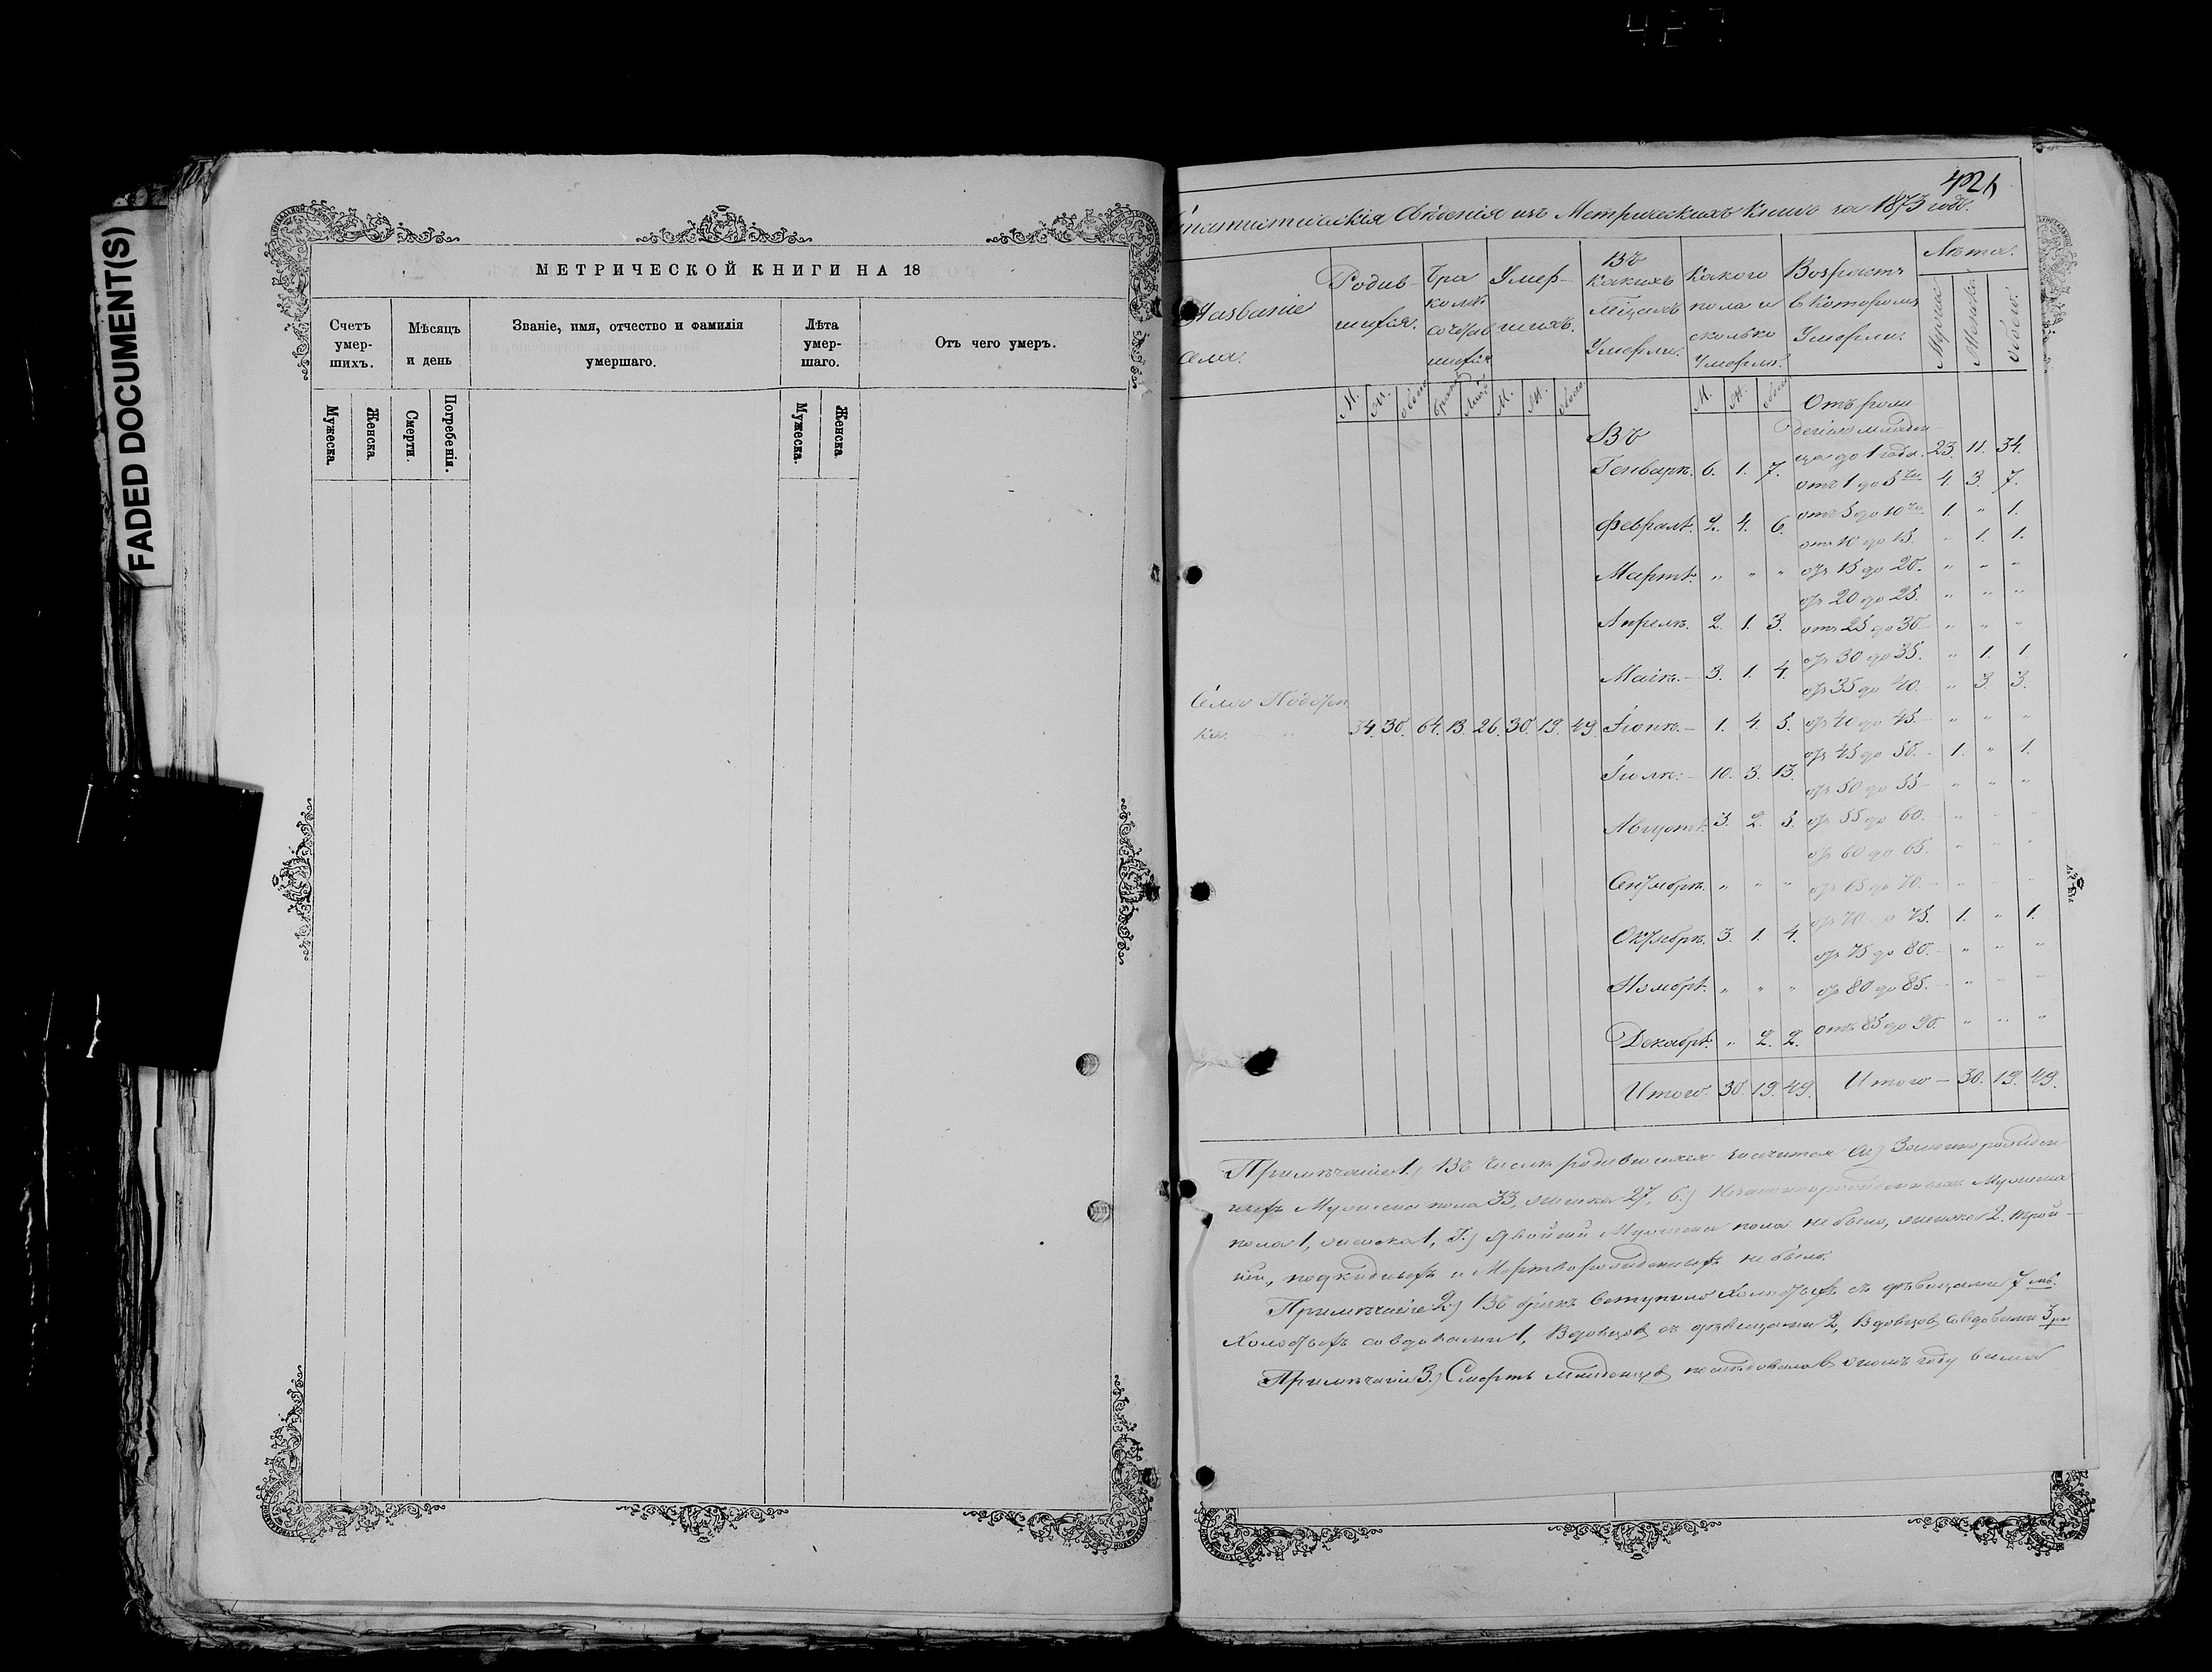 427
FADED DOCUMENT(S)
МЕТРИЧЕСКОЙ КНИГИ НА 18
Счетъ умер-шихъ.
Мѣсяцъ и день
Званіе, имя, отчество и фамилія умершаго.
Лѣта умер-шаго.
Отъ чего умеръ.
Мужеска.
Женска.
Смерти.
Погребенія.
Мужеска.
Женска.
Статистическія Свѣденія изъ Метрическихъ Книгъ за 1873 годъ.
Названіе села.
Родив-шихся.
Умер-шихъ.
Въ Какихъ Мѣсяцахъ Умерли.
Какого пола и сколько Умерли?
Возрастъ въ котором Умерли.
Лѣта.
М. Ж. Обоего
М. Ж. Обоего
М. Ж. Обоего
Въ
Генварѣ. 6. 1. 7.
Февралѣ. 2. 4. 6.
Мартѣ. " " "
Апрелѣ. 2. 1. 3.
Маіѣ. 3. 1. 4.
Село
34. 30. 64. 13. 26. 30. 19. 49.
Іюнѣ. 1. 4. 5.
Іюлѣ. 10. 3. 13.
Августѣ. 3. 2. 5.
Сентябрѣ. " " "
Октябрѣ. 3. 1. 4.
Ноябрѣ. " " "
Декабрѣ. " 2. 2.
Итого. 30. 19. 49.
Отъ рож
денія младен
ца до 1 года. 23. 11. 34.
отъ 1 до 5 4. 3. 7.
отъ 5 до 10 1. " 1.
отъ 10 до 15. " 1. 1.
отъ 15 до 20. " " "
отъ 20 до 25. " " "
отъ 25 до 30. " " "
отъ 30 до 35. " 1. 1
отъ 35 до 40. " 3. 3.
отъ 40 до 45. " " "
отъ 45 до 50. 1. " 1.
отъ 50 до 55 " " "
отъ 55 до 60. " " "
отъ 60 до 65. " " "
отъ 65 до 70. " " "
отъ 70 до 75. 1. " 1.
отъ 75 до 80. " " "
отъ 80 до 85. " " "
отъ 85 до 90. " " "
Итого 30. 19. 49.
Примѣчаніе 1.) Въ числѣ родившихся а) Законнорожден
ныхъ Мужеска пола 33, женска 27, б.) Незаконнорожденныхъ Мужеска
пола 1, женска 1, двойни Мужеска пола не было, женска 2. трой-
ни, подкидныхъ и Мертворожденныхъ не было.
Примѣчаніе 2.) Въ бракъ вступило Холостыхъ съ дѣвицами 7
Холостыхъ со вдовами 1, Вдовцовъ съ дѣвицами 2, Вдовцовъ со вдовами 3
Примѣчаніе 3.) Смерть младенцевъ